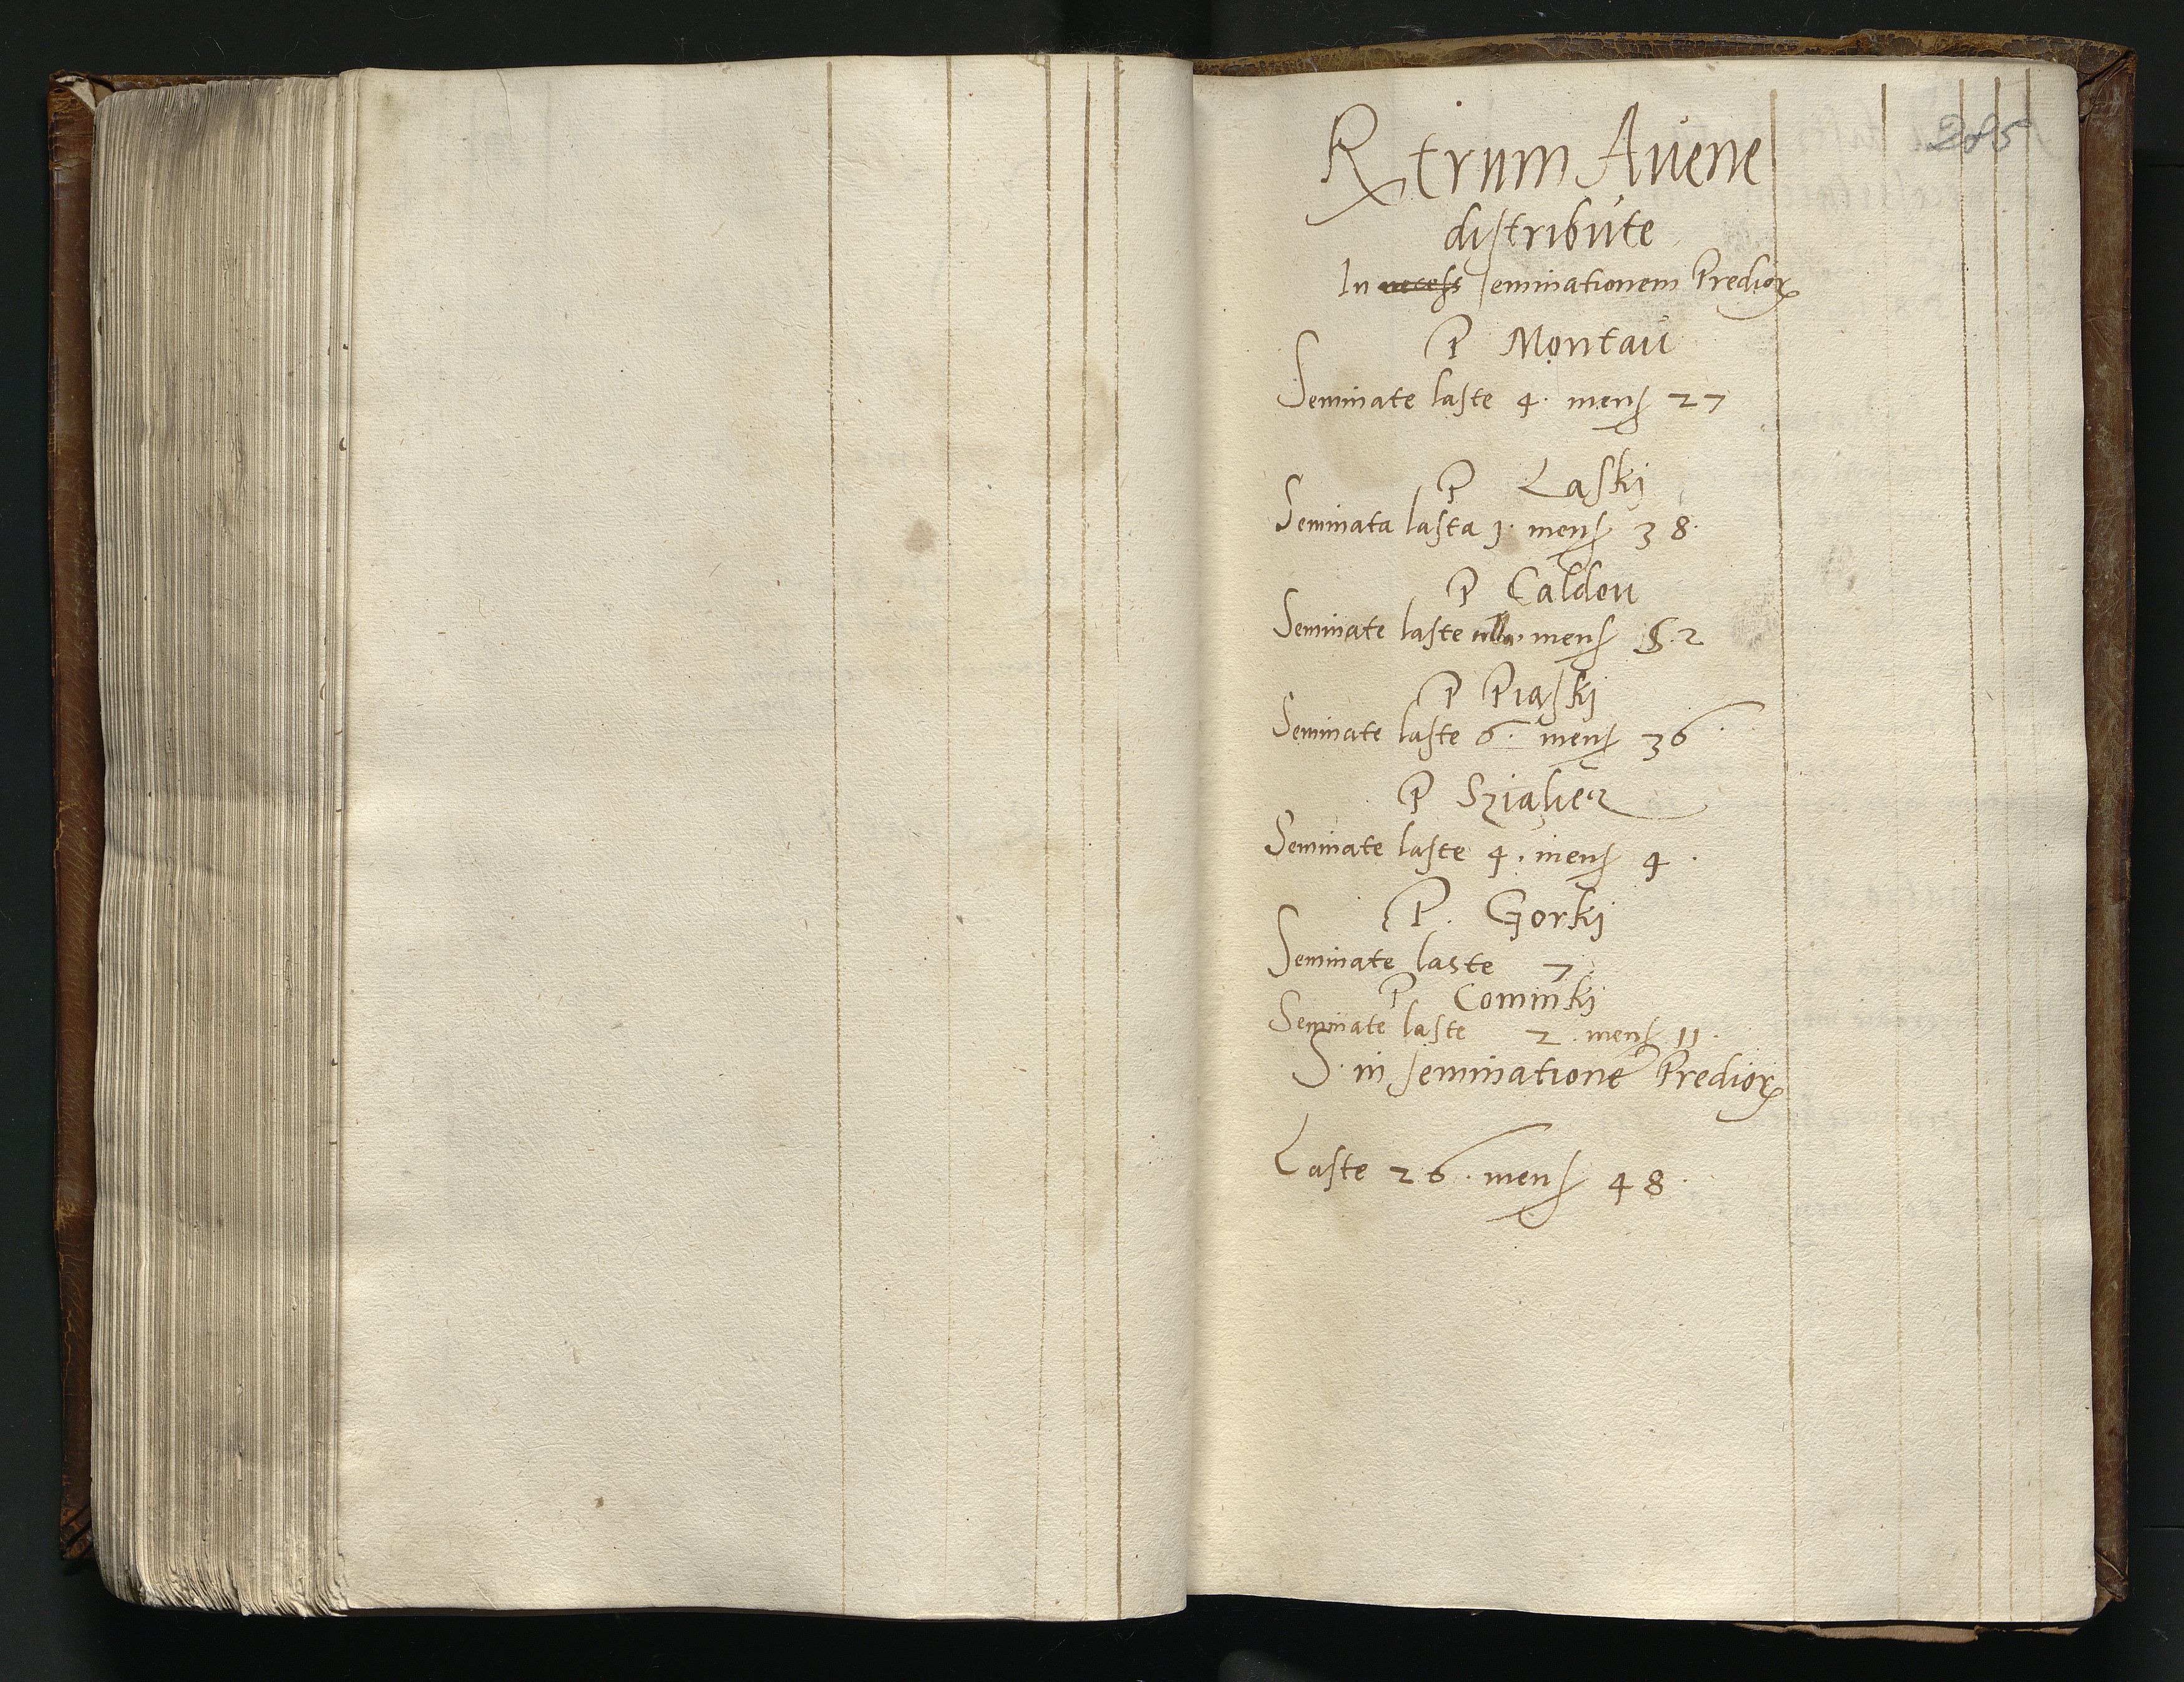 285
Rtrum Auene
distribute
In necess seminationem Predior
P Montau
Seminate laste 4. mens 27
P Laski
Seminata lasta 1. mens 38.
P Caldou
Seminate laste nulla mens 52
P Piaski
Seminate laste 6. mens 36
P
Seminate laste 4. mens 4.
P. Gorki
Seminate laste 7.
P Cominki
Seminate laste 2. mens 11.
S. in seminatione Predior
Laste 26. mens 48.